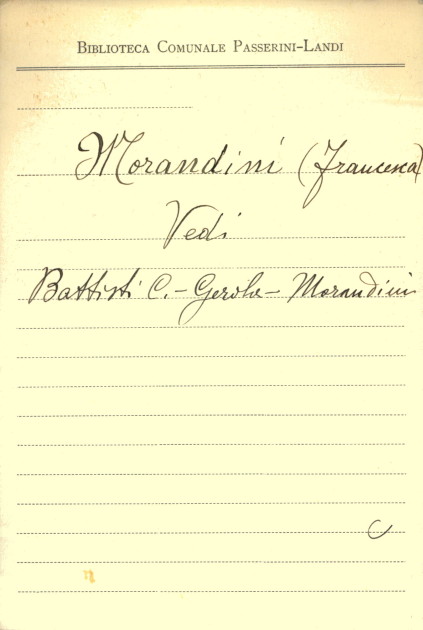 BIBLIOTECA COMUNALE PASSERINI-LANDI
Morandini (Francesca)
Vedi
Battisti C. - Gerola - Morandini
C